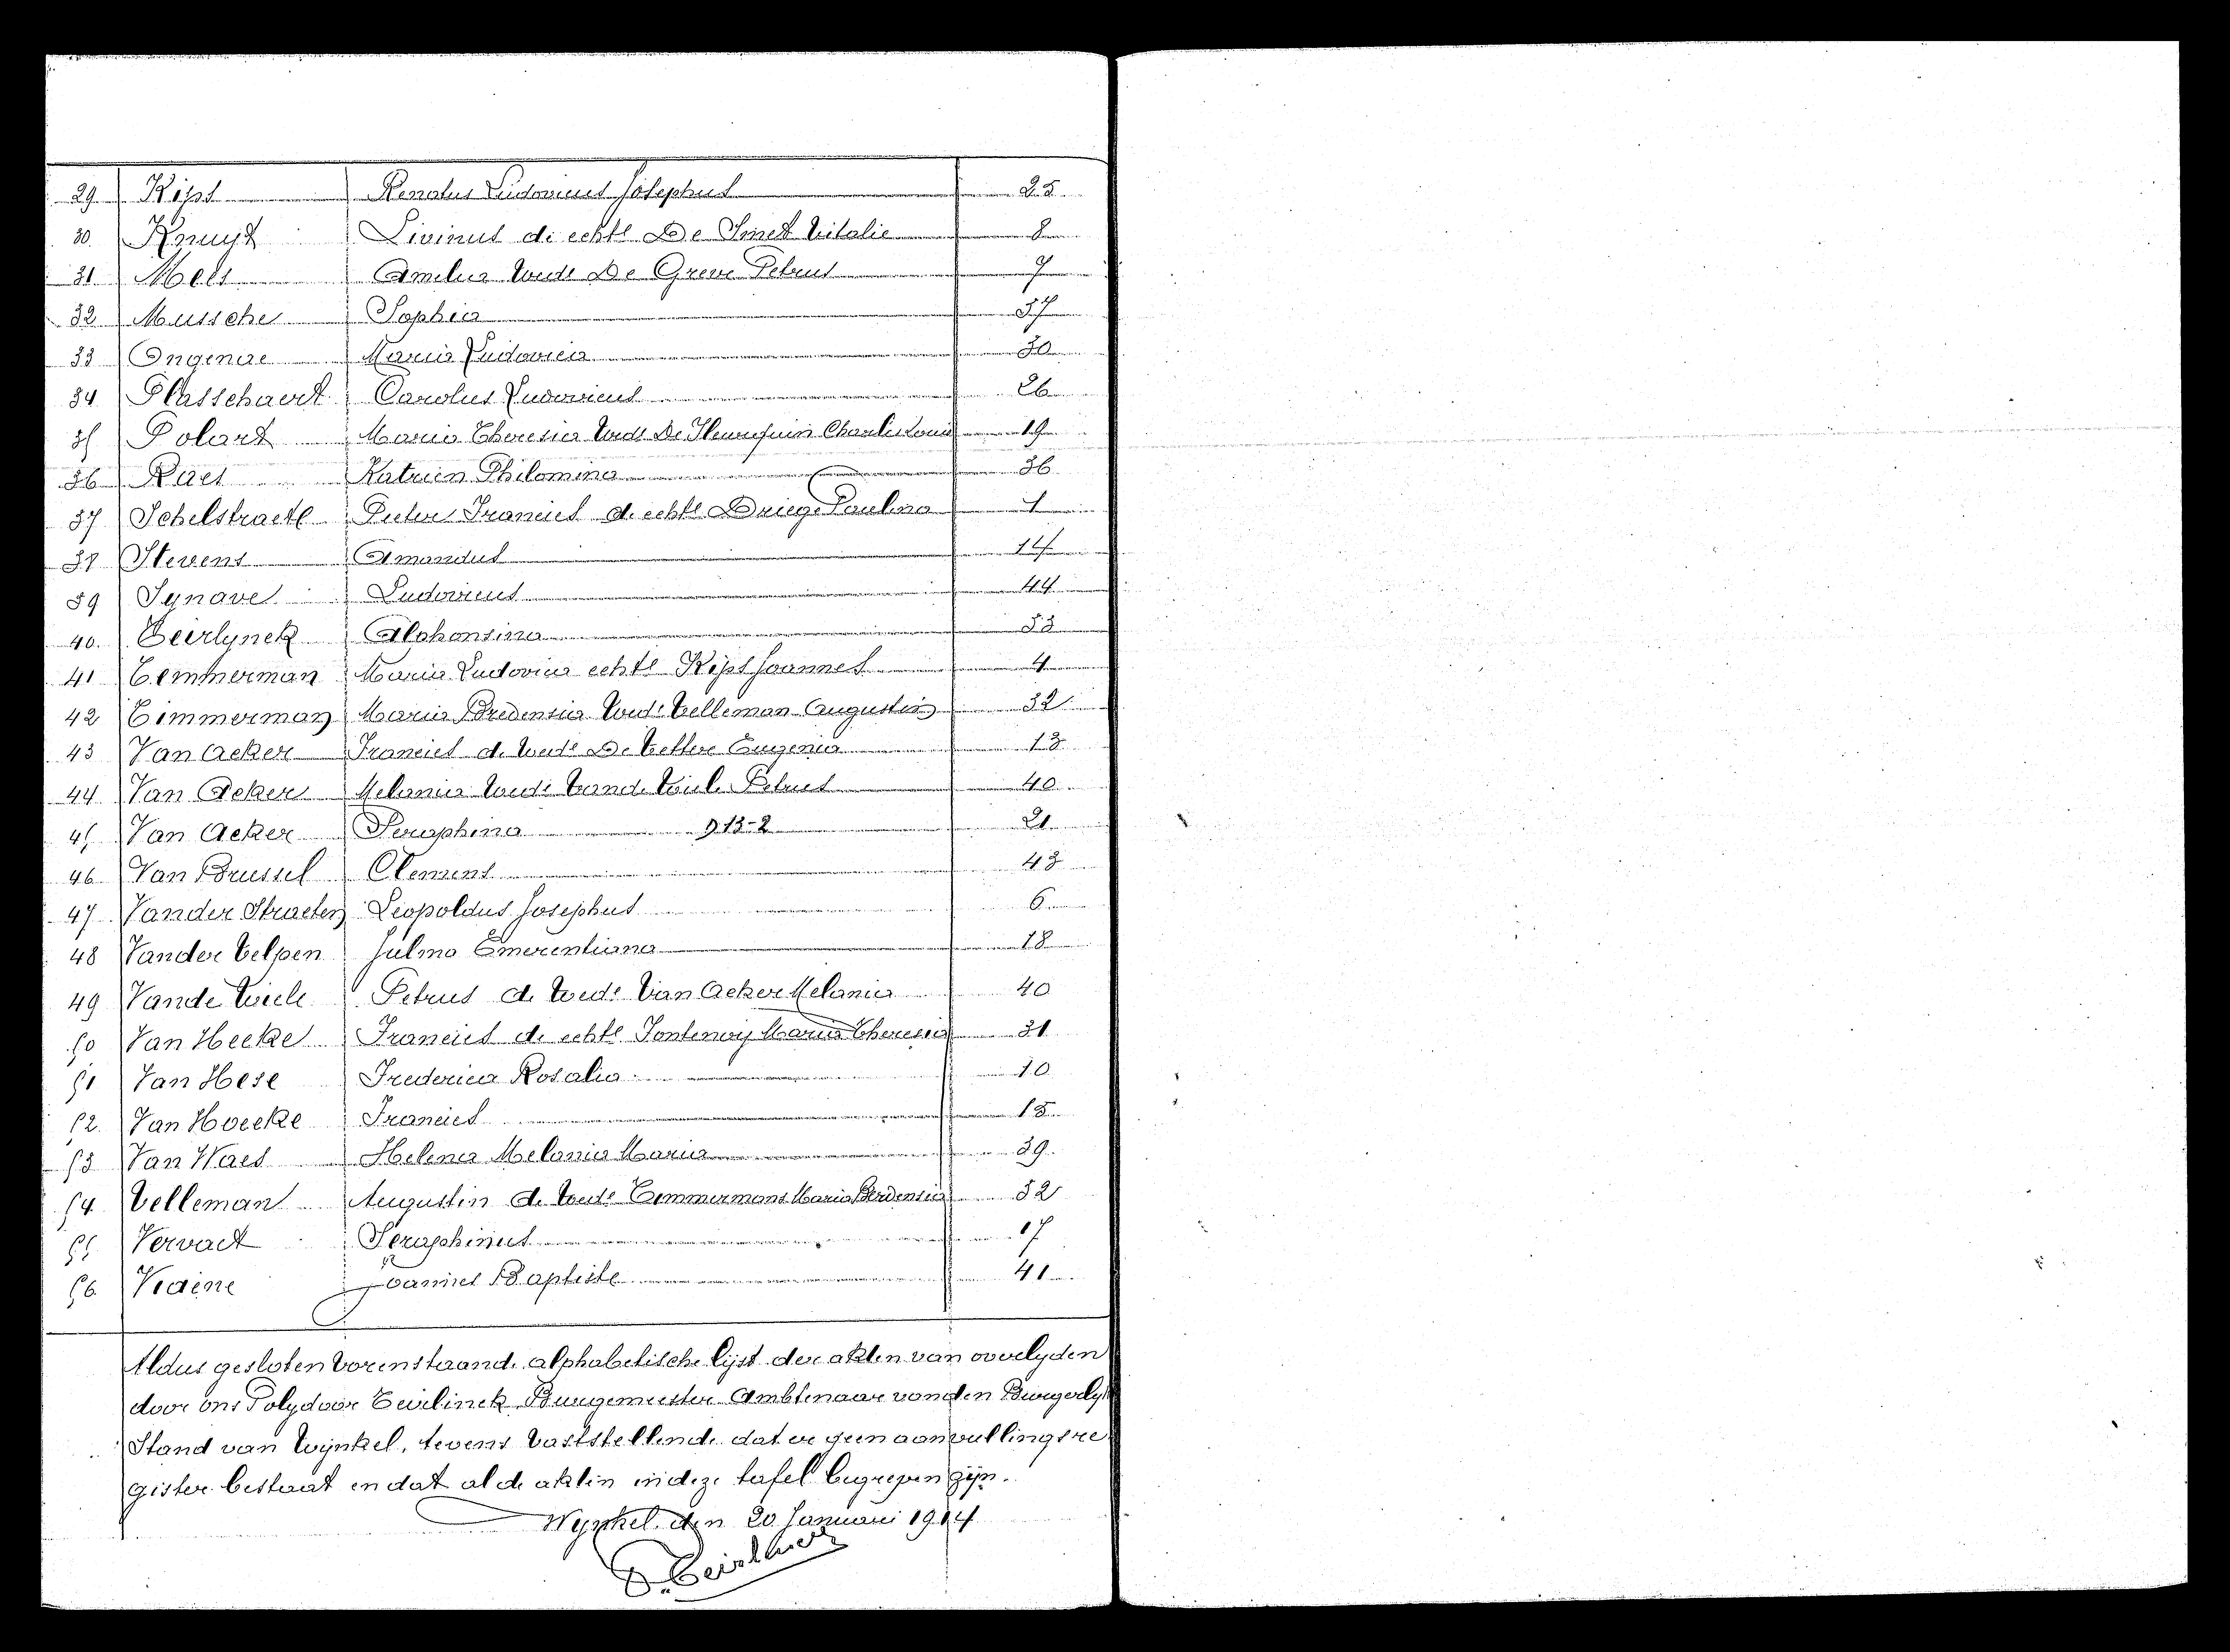 29 Kips Renatus Ludovicus Josephus 25
30 Knuyt Livinus de echte De Smet Vitalie 8
31 Mels Amelia Wede De Greve Petrus 7
32 Mussche Sophia 37
33 Ongenae Maria Ludovica 30
34 Plasschaert Carolus Ludovicus 26
35 Polart Maria Theresia Wede De Charles Louis 19
36 Raes Katrien Philomina 36
37 Schelstraete Pieter Francies de echte Driege Paulina 1
38 Stevens Amandus 14
39 Synave Ludovicus 44
40. Teirlynck Alphonsina 33
41 Temmerman Maria Ludovica echte Kips Joannes 4
42 Timmerman Maria Predensia Wede Velleman Augustin 32
43 Van Acker Francies de Wede De Vettere Eugenia 13
44 Van Acker Melania Wede Vande Wiele Petrus 40
45 Van Acker Seraphina D 13-2 21
46 Van Brussel Clement 43
47 Vander Straeten Leopoldus Josephus 6
48 Vander Velpen Julma Emerentiana 18
49 Vande Wiele Petrus de Wede Van Acker Melania 40
50 Van Hecke Francies de echte Fontenoy Maria Theresia 31
51 Van Hese Frederica Rosalia 10
52. Van Hoecke Francies 15
53 Van Waes Helena Melania Maria 39
54 Velleman Augustin de Wede Temmermans Maria 32
55 Vervaet Seraphinus 17
56. Videne Joannes Baptiste 41
Aldus gesloten vorenstaande alphabetische lijst der akten van overlyden
door ons Polydoor Teirlinck Burgemeester Ambtenaar van den Burgerlyk
Stand van Wynkel, tevens vaststellende dat er geen aanvullingsre
gister bestaat en dat al de akten in deze tafel begrepen zijn.
Wynkel den 20 Januari 1914
P. Teirlinck